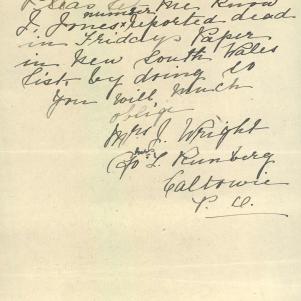 Pleas let me know
number
J. Jones x reported dead
in Fridays Paper
in New South Wales
lists by doing so
You will much
oblige
Mrs J. Wright
C/o Mrs L. Runberg
Caltowie
P. O.